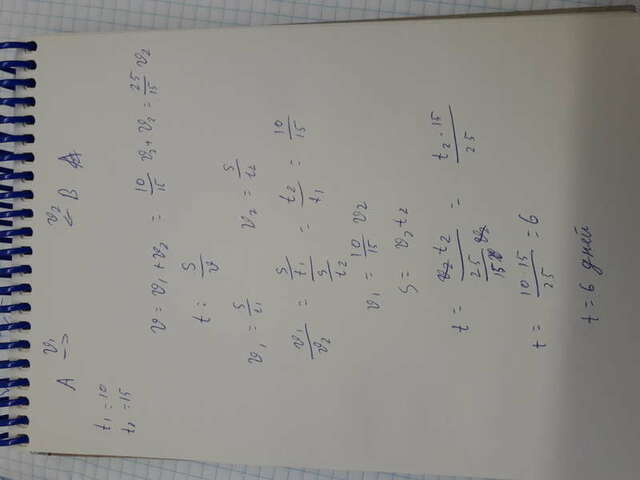 v₁ v₂
A → ← B A
t₁ = 10
t₂ = 15
v = v₁ + v₂ = 10/15 v₂ + v₂ = 25/15 v₂
t = S/v
v₁ = S/t₁ v₂ = S/t₂
v₁/v₂ = (S/t₁)/(S/t₂) = t₂/t₁ = 10/15
v₁ = 10/15 v₂
S = v₂ t₂
t = v₂ t₂/(25/15 v₂) = t₂ · 15/25
t = 10 · 15/25 = 6
t = 6 дней